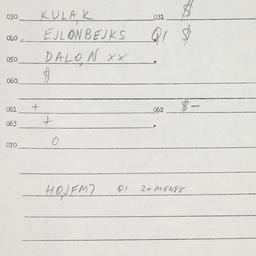 030 KULA,K 031 $
040 EJLONBEJKS Q1 $
050 DALO,N xx
060 $
061 + 062 $-
063 +
070 O
HO,JFM7 01 2+MONEY